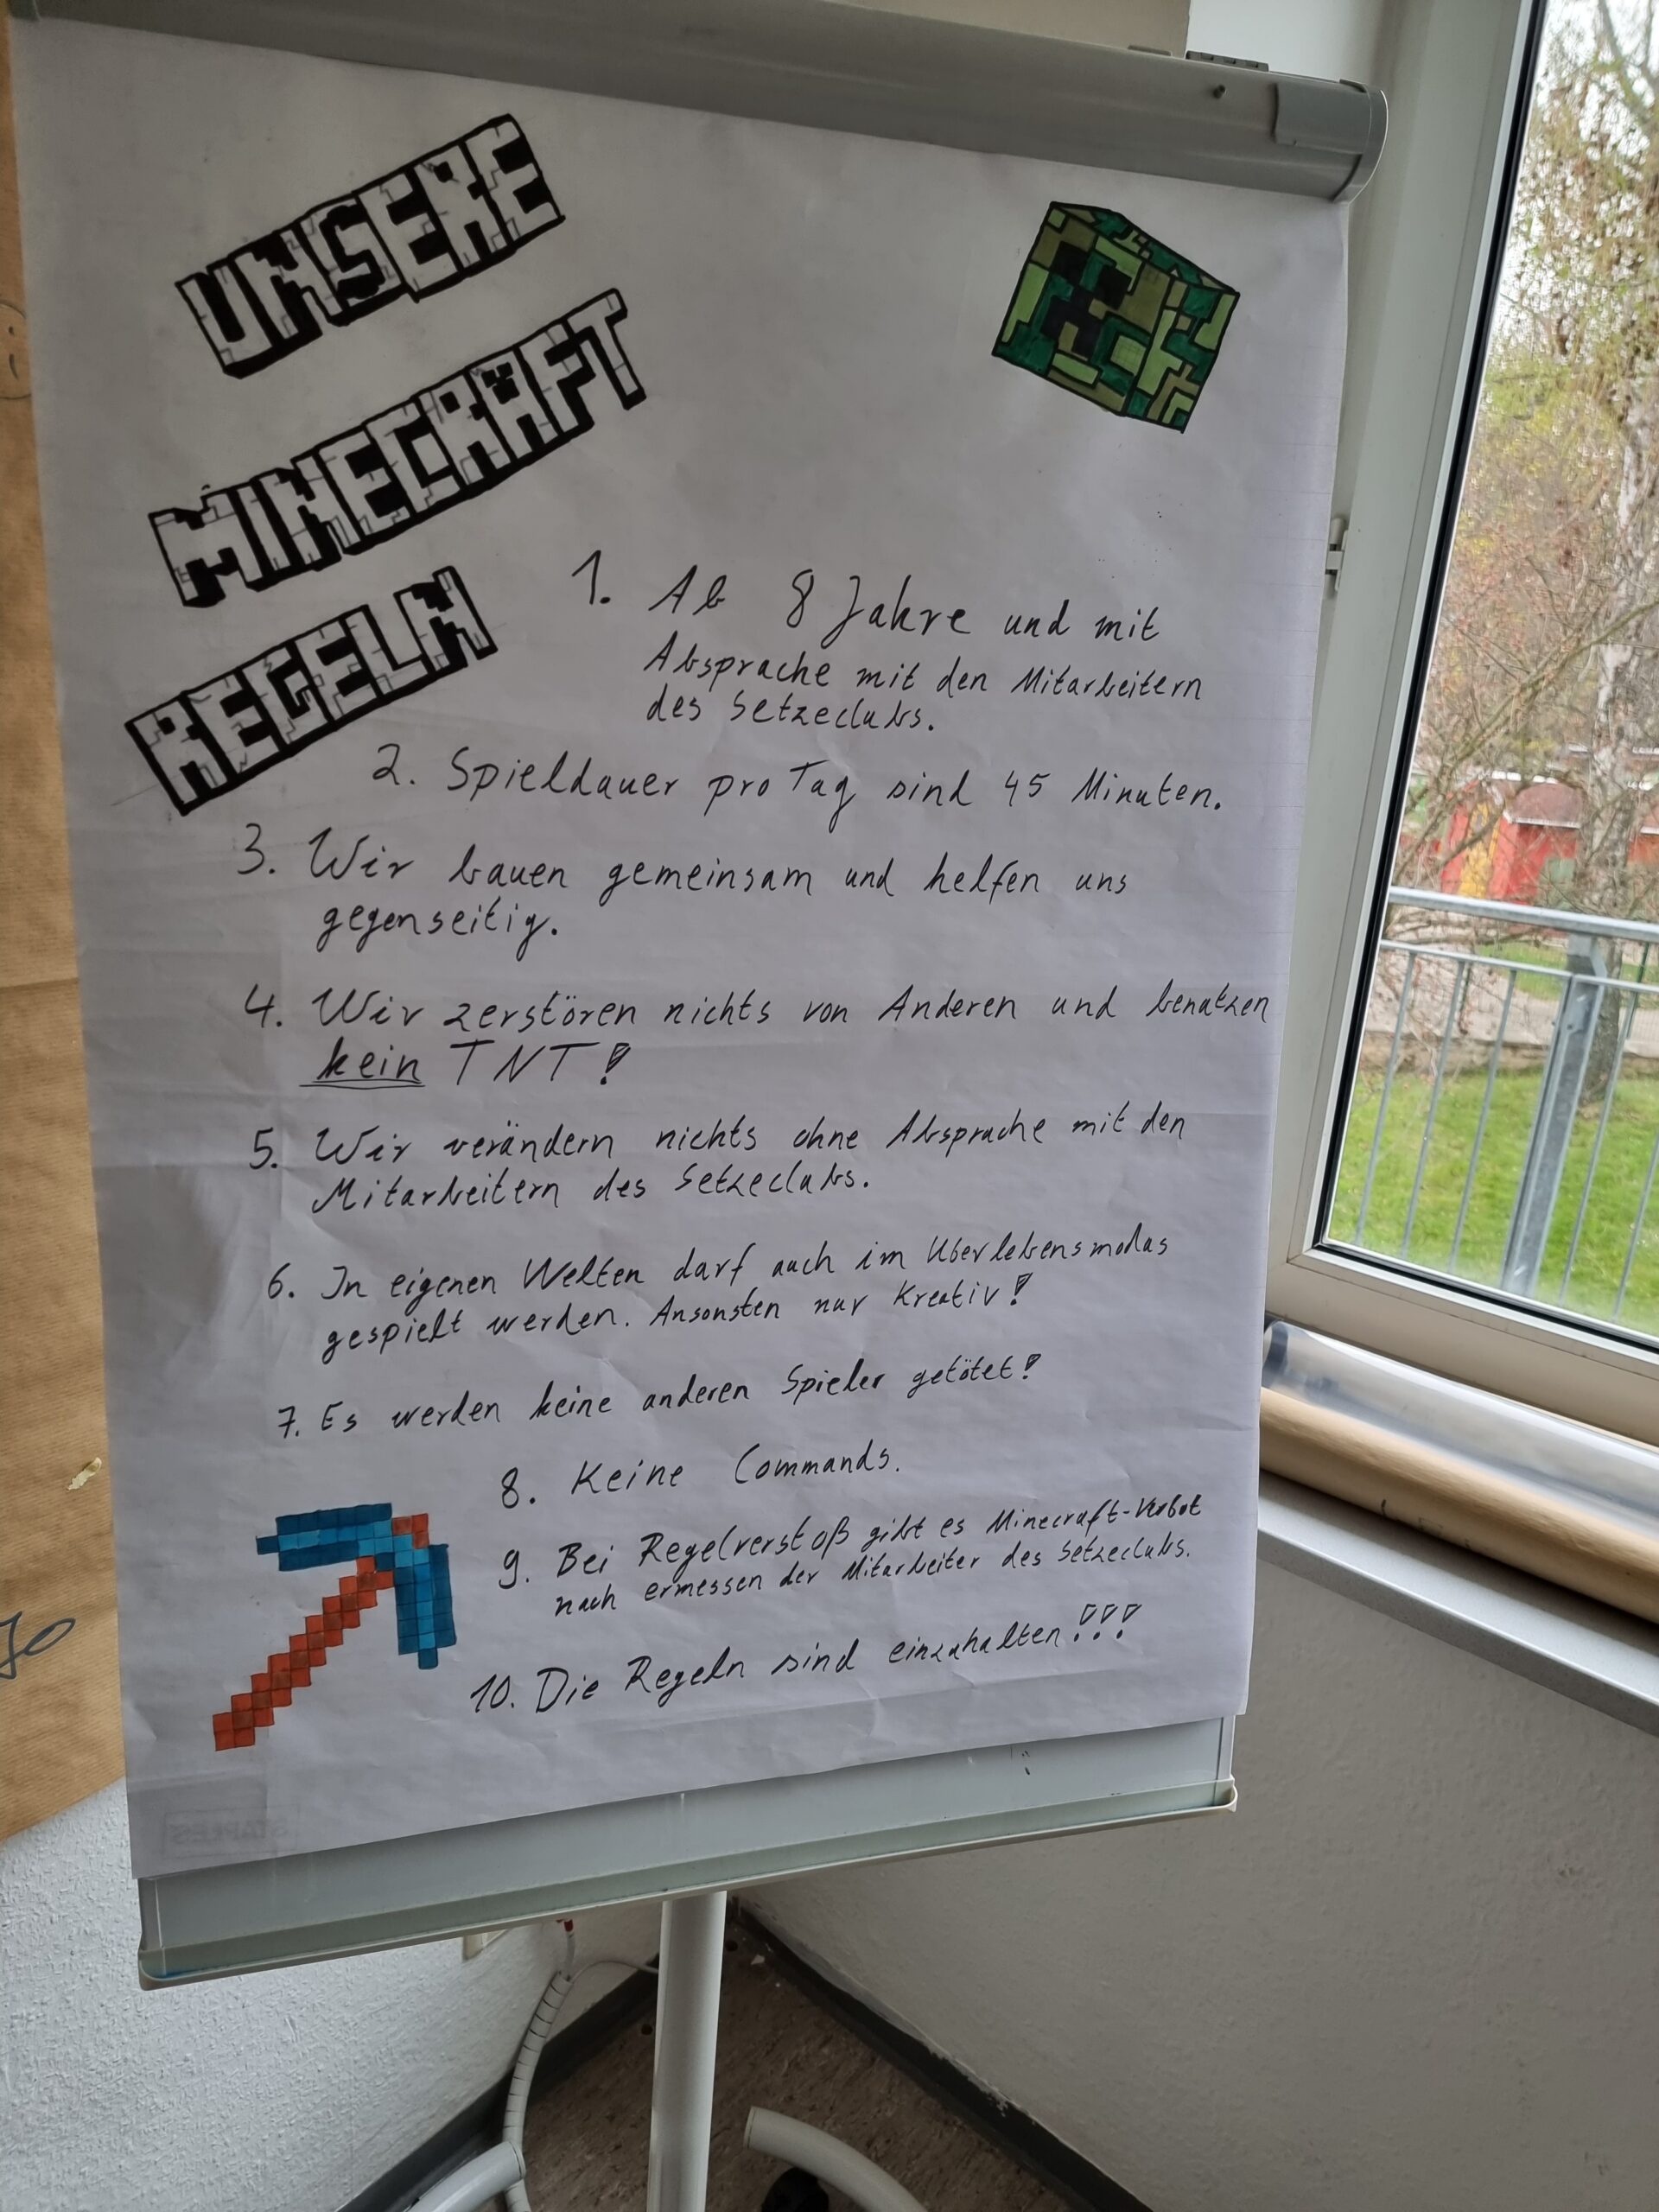 UNSERE
MINECRAFT
REGELN
1. Ab 8 Jahre und mit
Absprache mit den Mitarbeitern
des Setzeclubs.
2. Spieldauer pro Tag sind 45 Minuten.
3. Wir bauen gemeinsam und helfen uns
gegenseitig.
4. Wir zerstören nichts von Anderen und benutzen
kein TNT!
5. Wir verändern nichts ohne Absprache mit den
Mitarbeitern des Setzeclubs.
6. In eigenen Welten darf auch im Überlebensmodus
gespielt werden. Ansonsten nur Kreativ!
7. Es werden keine anderen Spieler getötet!
8. Keine Commands.
9. Bei Regelverstoß gibt es Minecraft-Verbot
nach ermessen der Mitarbeiter des Setzeclubs.
10. Die Regeln sind einzuhalten!!!
STAPLES